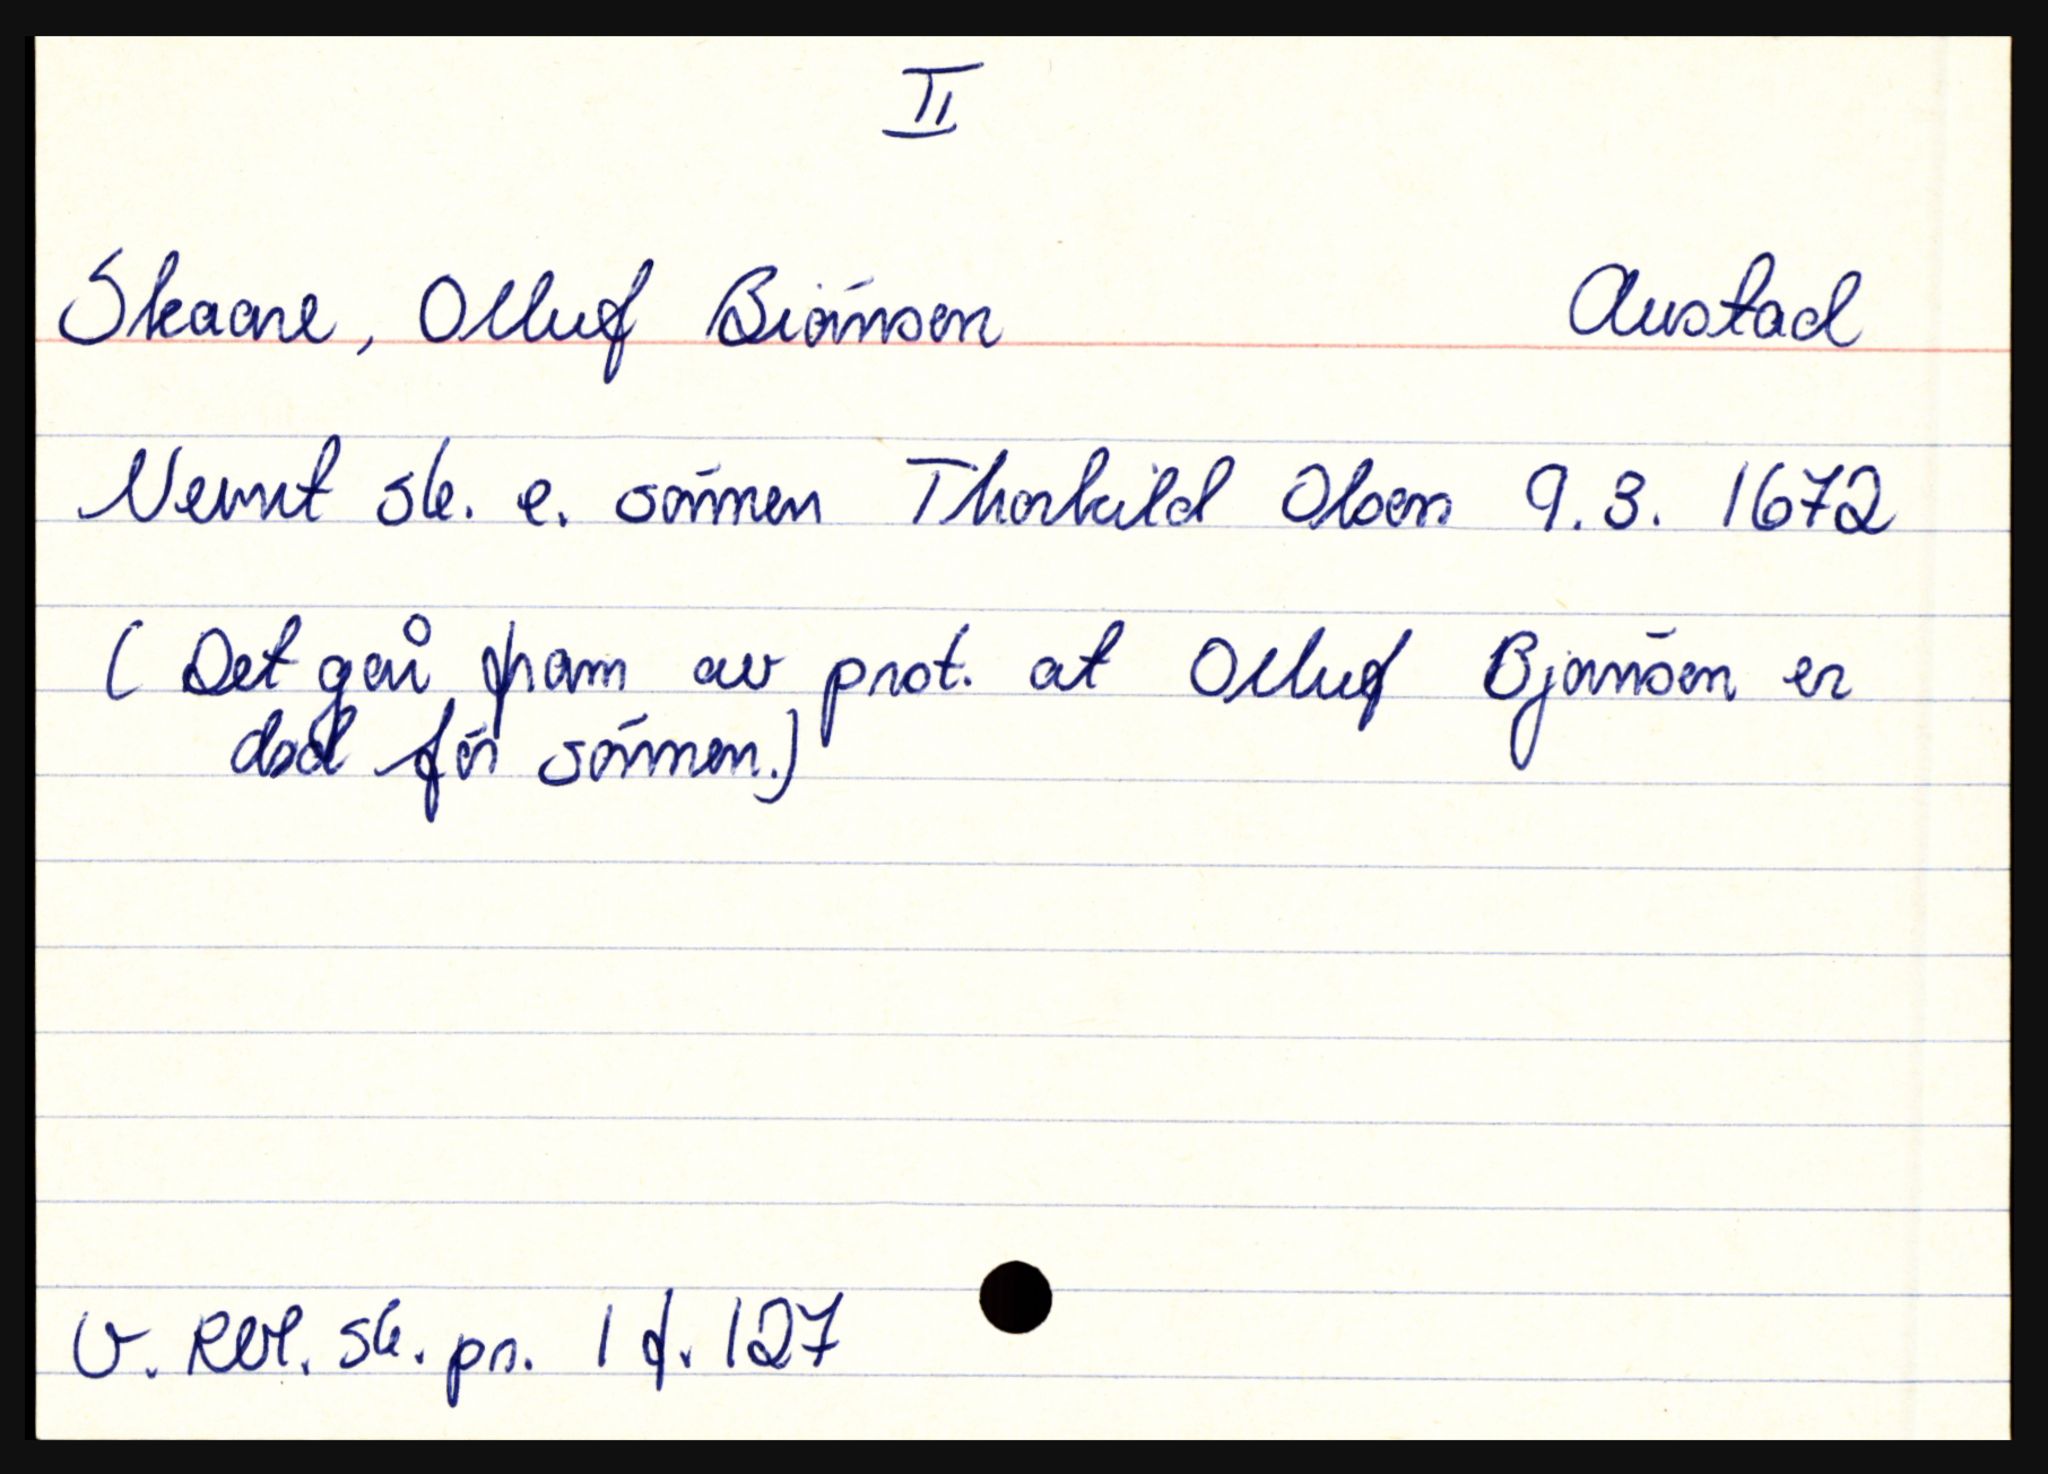 II
Skaare, Olluf Biönsen Austad
Nevnt sk. e. sönnen Thorkild Olsen 9.3. 1672
( Det går fram av prot. at Olluf Bjönsen er
død för sönnen.)
V. Rbl. sk. pr. 1 f. 127